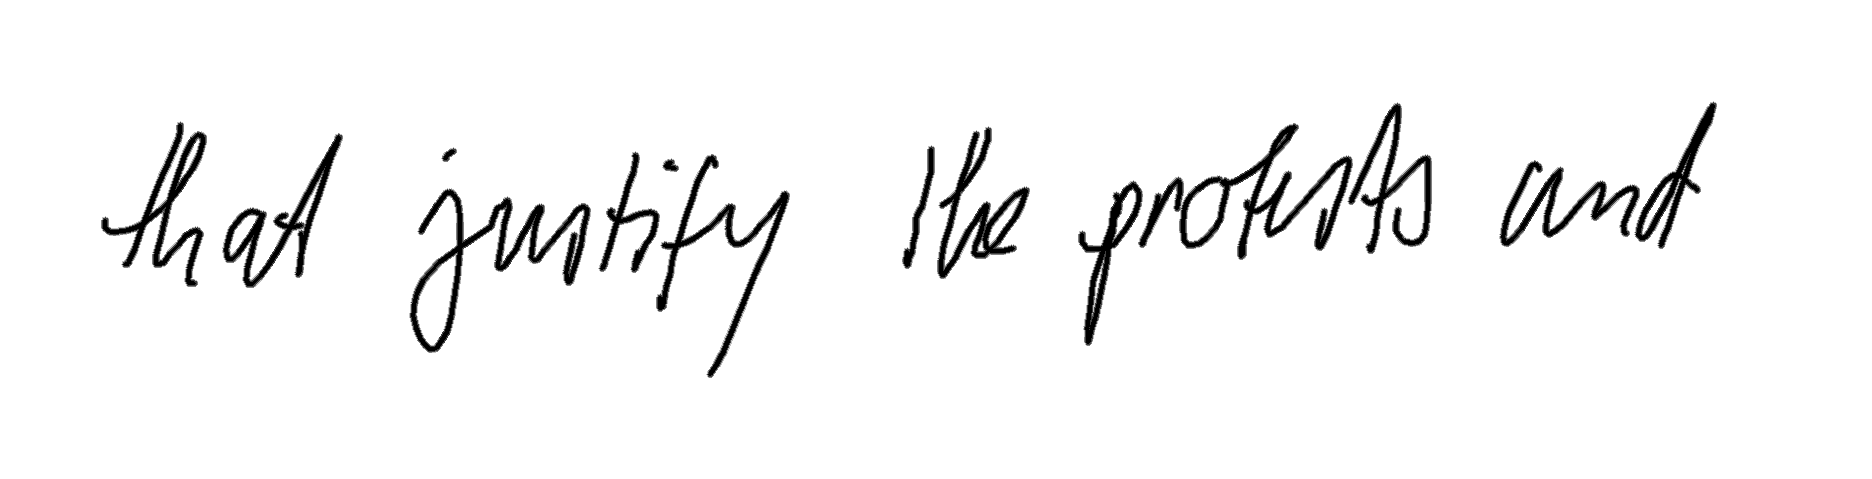 that justify the protests and